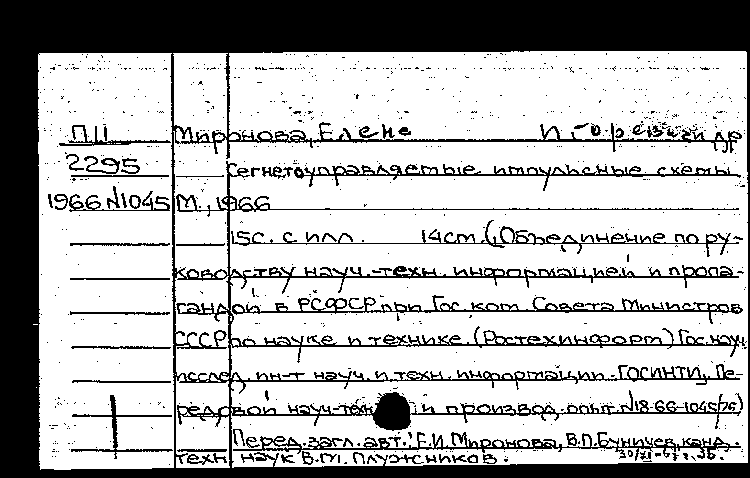 П11 Миронова, Елена Игоревна и др
2295 Сегнетоуправляемые импульсные схемы
1966 №1045 М., 1966
15с. с илл. 14см. (Объединение по ру-
ководству науч.-техн. информацией и пропа-
гандой в РСФСР при Гос. ком. Совета Министров
СССР по науке и технике. (Ростехинформ) Гос. науч.
исслед. ин-т науч. и техн. информации. ГОСИНТИ, Пе-
редовой науч-техн и производ. опыт. №18-66-1045/76)
Перед загл. авт.: Е.И. Миронова, В.П. Буничев, канд.
техн. наук В.М. Плужников.